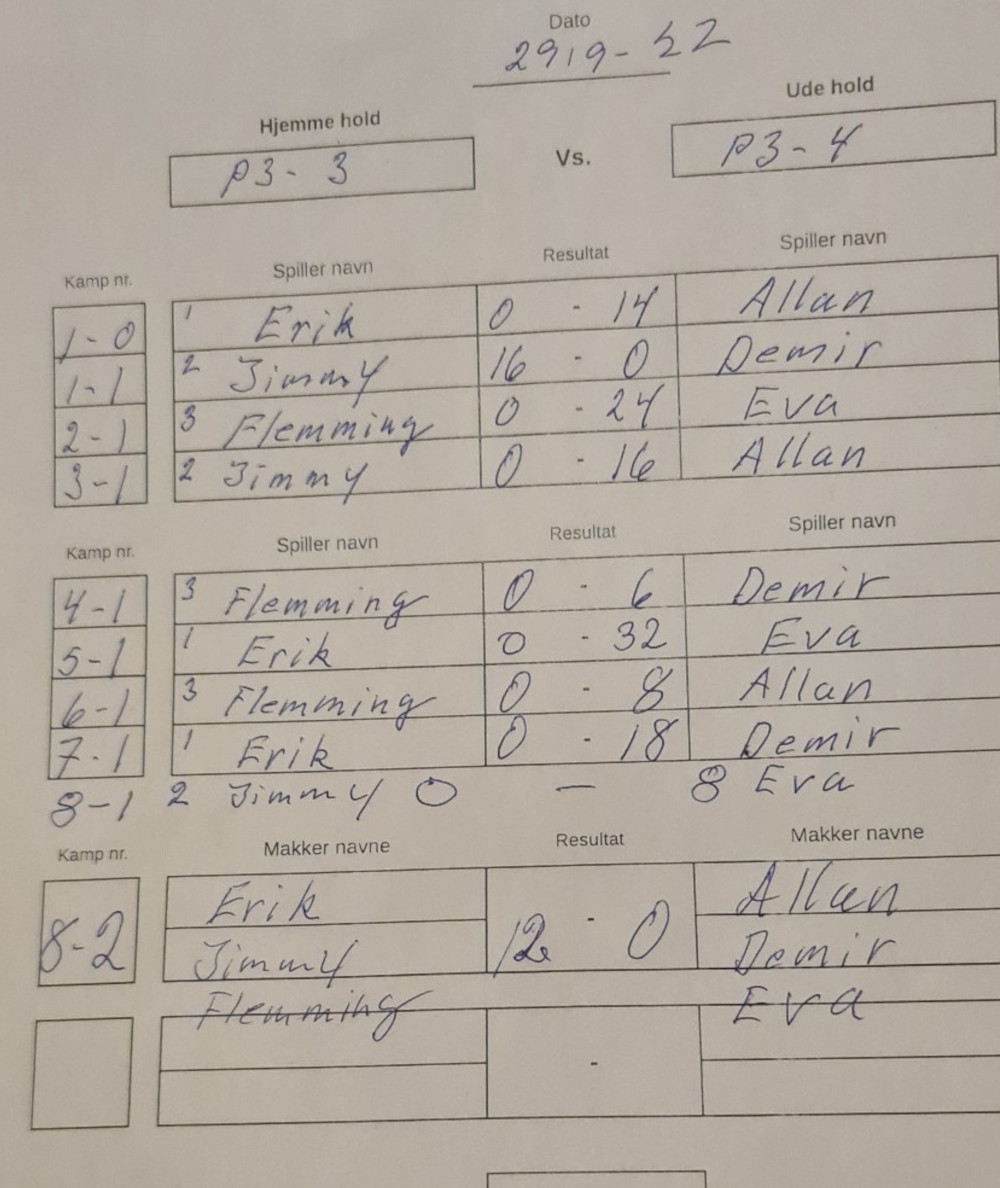 Dato
2919-22
Hjemme hold Ude hold
P3-3 Vs. P3-4
Kamp nr. Spiller navn Resultat Spiller navn
1-0 1 Erik 0 - 14 Allan
1-1 2 Jimmy 16 - 0 Demir
2-1 3 Flemming 0 - 24 Eva
3-1 2 Jimmy 0 - 16 Allan
Kamp nr. Spiller navn Resultat Spiller navn
4-1 3 Flemming 0 - 6 Demir
5-1 1 Erik 0 - 32 Eva
6-1 3 Flemming 0 - 8 Allan
7-1 1 Erik 0 - 18 Demir
8-1 2 Jimmy 0 - 8 Eva
Kamp nr. Makker navne Resultat Makker navne
Erik Allan
8-2 12 - 0
Jimmy Demir
Flemming Eva
-